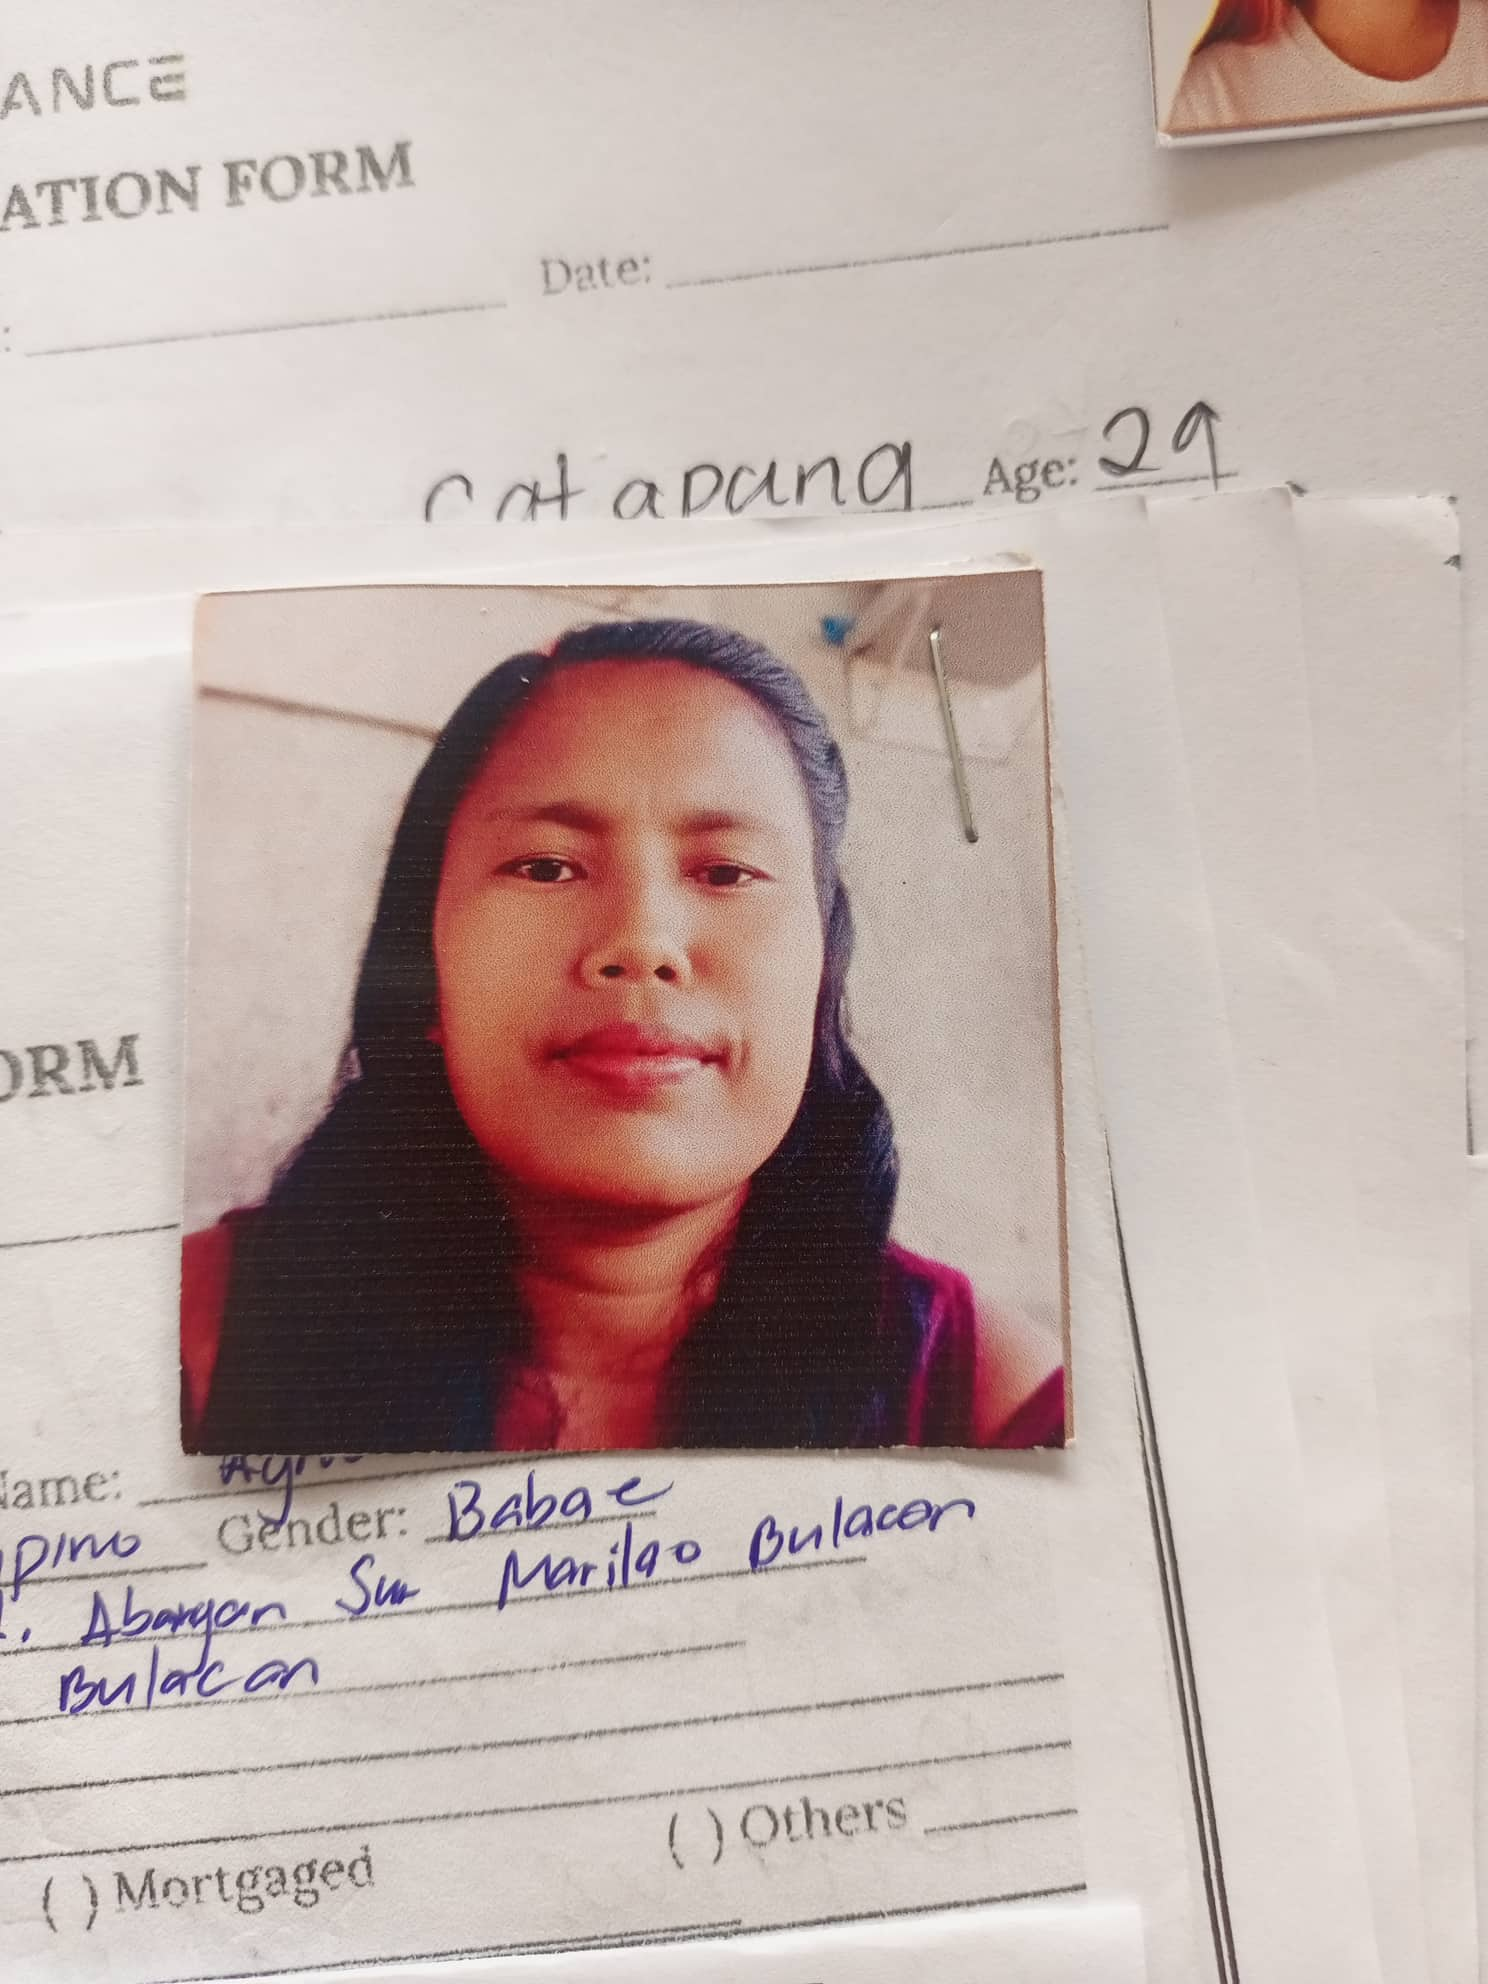 ANCE
ATION FORM
Date:
Catapang Age: 29
ORM
Name:
Gender: Babae
Abangan Sur Marilao Bulacan
Bulacan
( ) Mortgaged ( ) Others